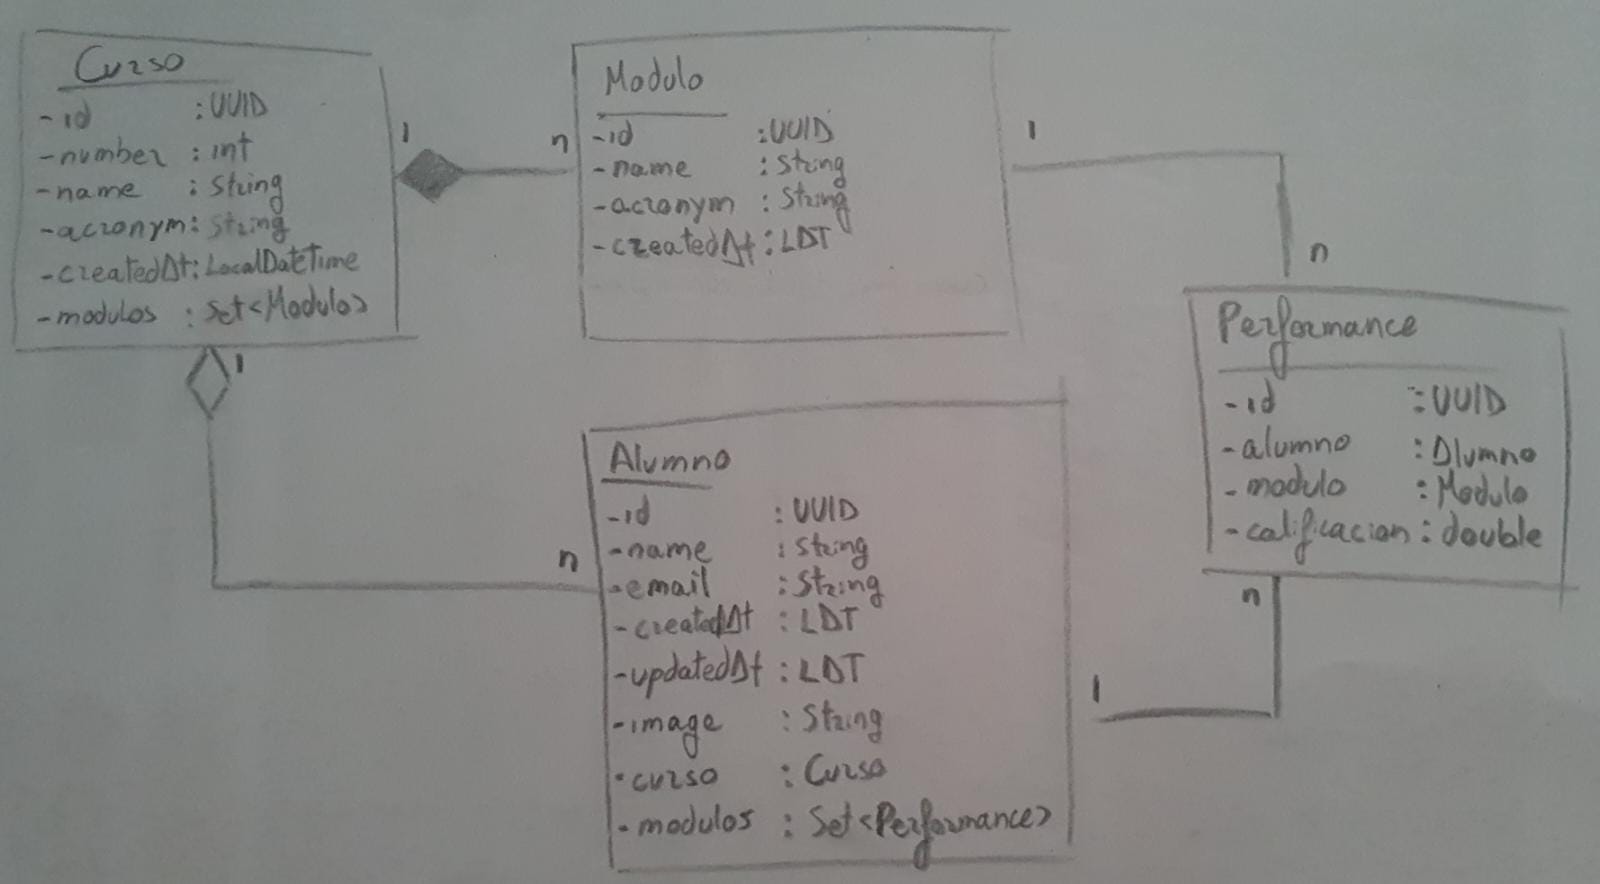 Curso
-id : UUID
-number : int
-name : String
-acronym : String
-createdAt : LocalDateTime
-modulos : Set<Modulo>
1
n
Modulo
-id : UUID
-name : String
-acronym : String
-createdAt : LDT
1
n
Performance
-id : UUID
-alumno : Alumno
-modulo : Modulo
-calificacion : double
1
n
Alumno
-id : UUID
-name : String
-email : String
-createdAt : LDT
-updatedAt : LDT
-image : String
-curso : Curso
-modulos : Set<Performance>
n
1